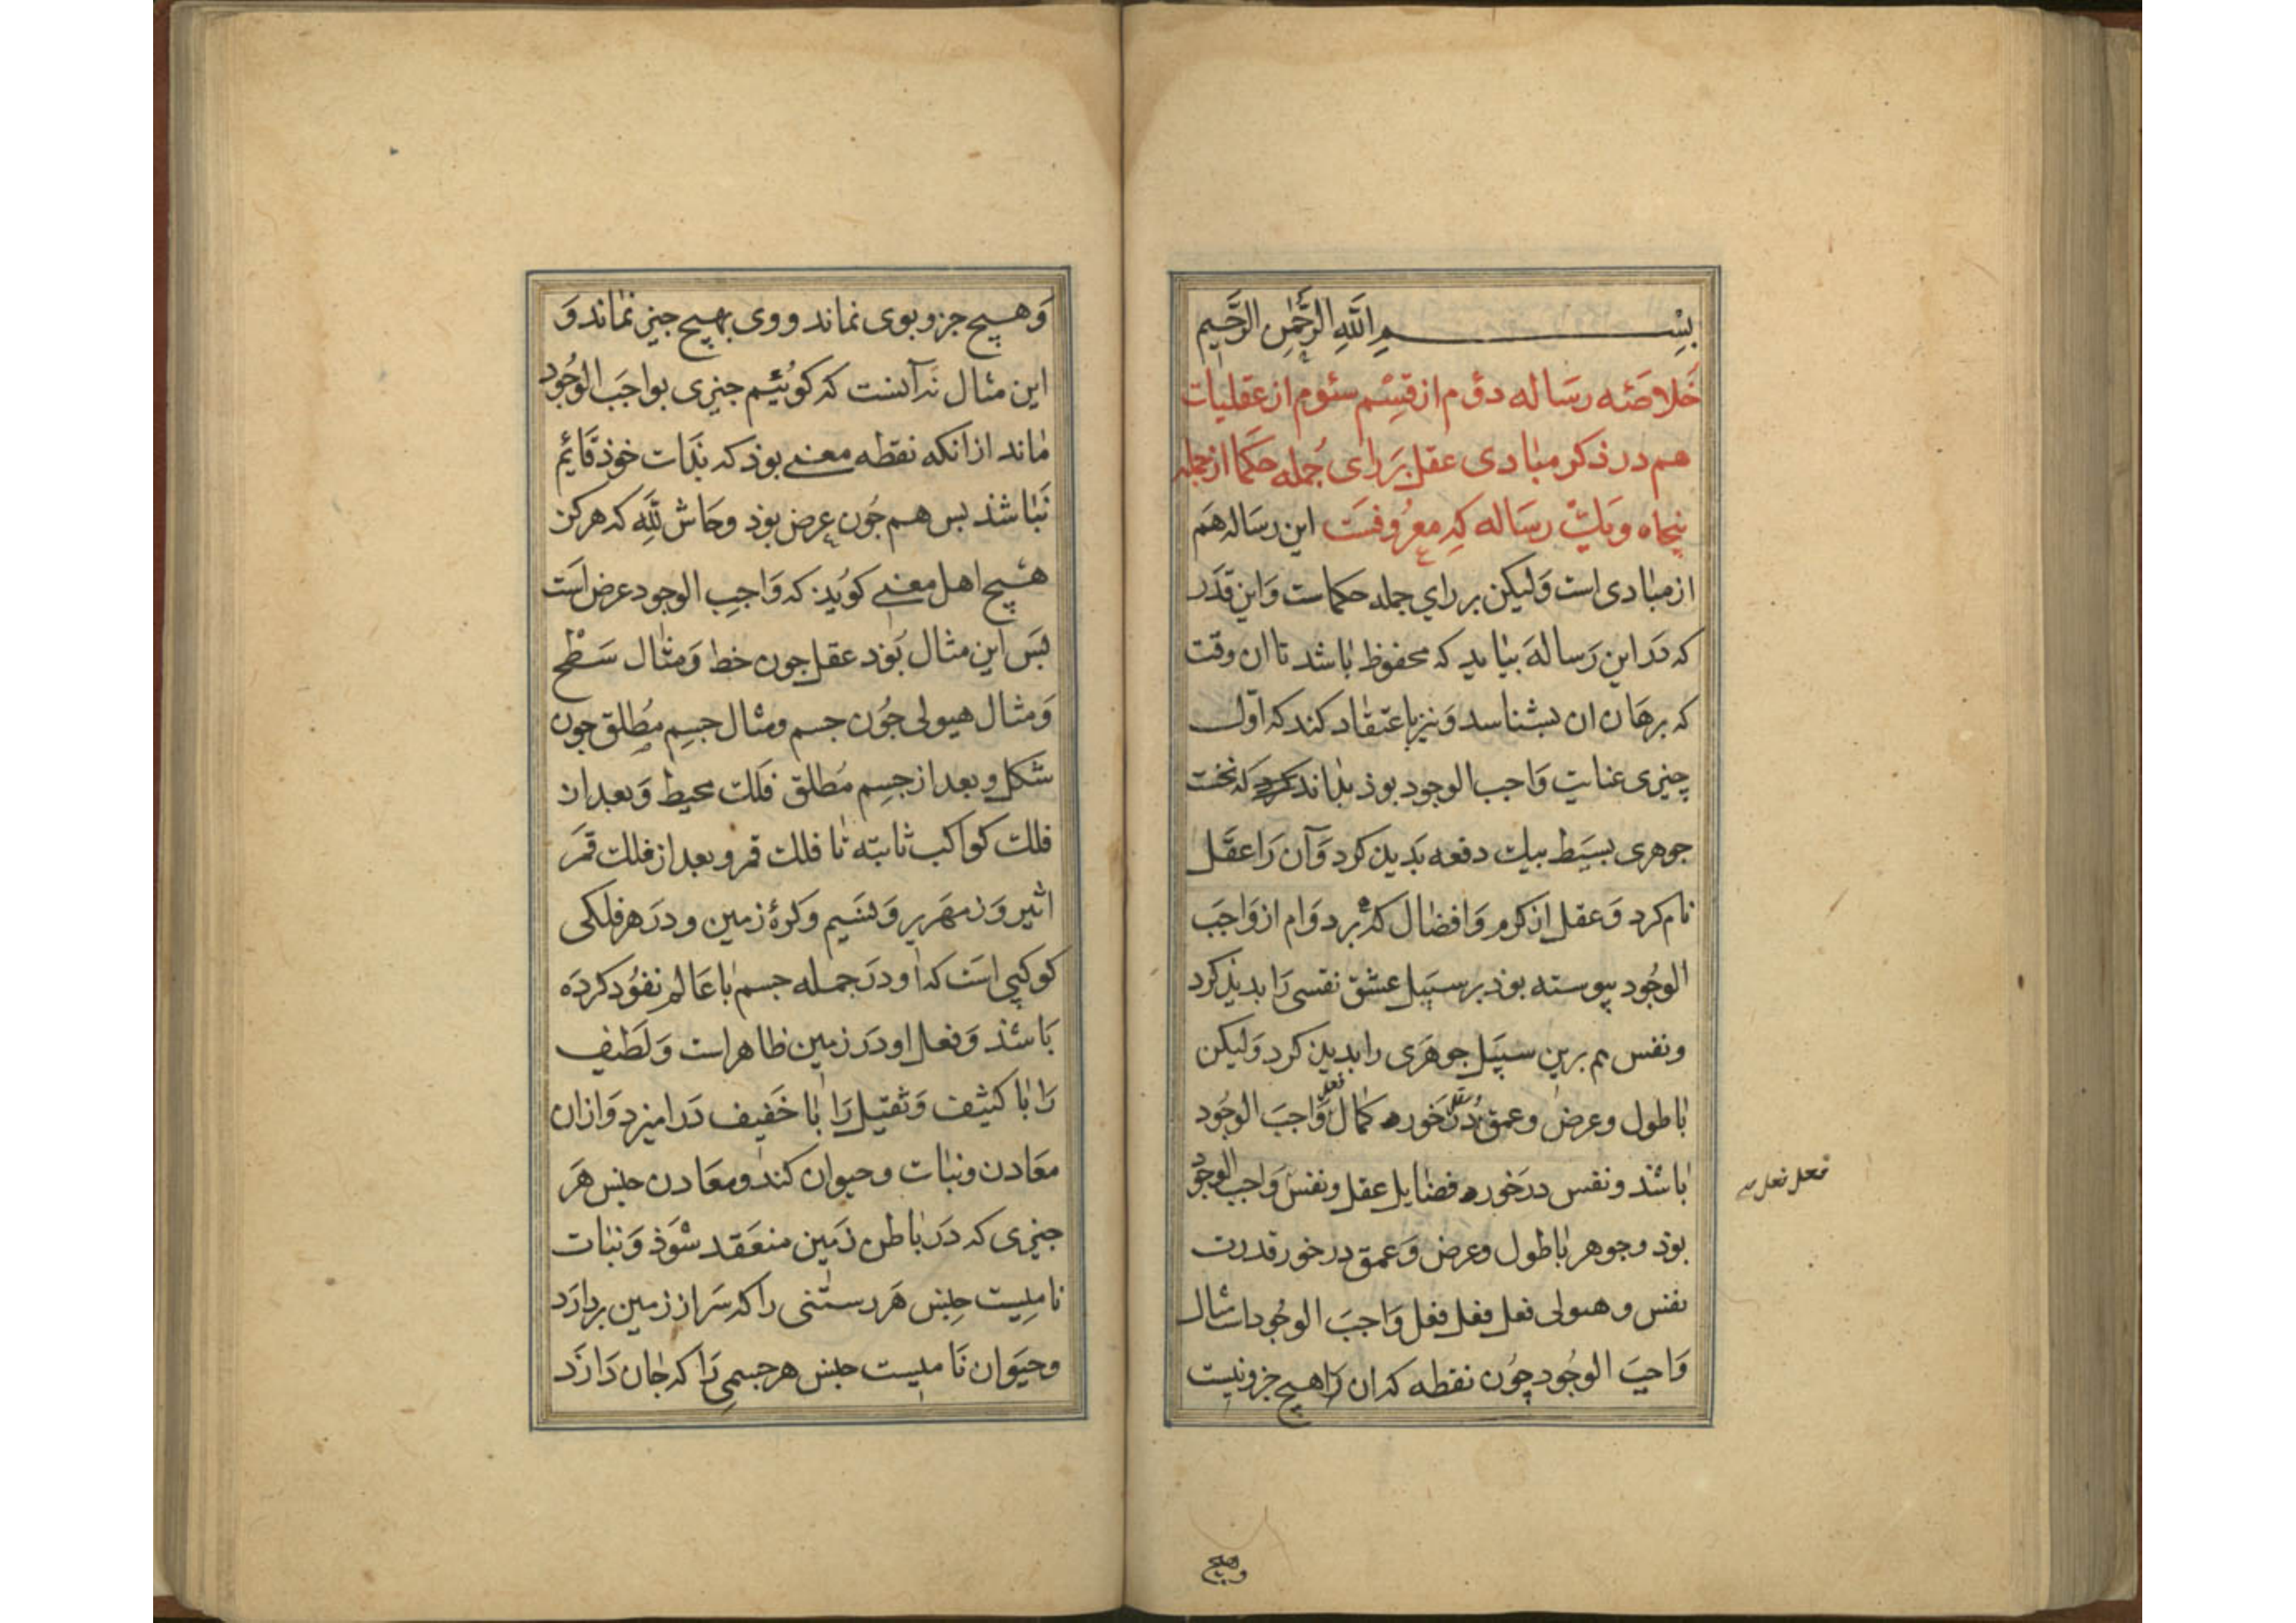 بِسْمِ اللّٰهِ الرَّحْمٰنِ الرَّحِيمِ
خَلاصَئه رسَاله دوُم از قِسْم سئوم از عَقليات
هم در ذکر مبادی عقل بَر رای جُمله حکما از جمله
پنجاه و یک رسَاله که معرُوفسَت این رسَاله هَم
از مبادی است وَلیکن بر رای جمله حکماست وَاین قدَر
که دَر این رَساله بیاید که محفوظ باشد تا ان وقت
که برهان ان بشناسد وَنیز باعتقاد کند که اوّل
چیزی عنایت وَاجب الوجود بوذ بداند که نخست
جوهری بسَیط بیک دفعه بَدید کرد وَآن رَا عقَل
نام کرد وَعقل از کرم وَافضال که بر دوَام از وَاجَب
الوجُود پیوسته بوذ بر سبَیل عشق نفسی رَا بدیذ کرد
ونفس هم برین سبیَل جوهَری را بدید کرد وَلیکن
باطول وعرض وعمق دَر خوره کمال فعل وَاجبَ الوجُود
باشذ ونفس درخوره فضایل عقل ونفس وَاجب الوجُود
بوذ وجوهر باطول وعرض وَعمق درخور قدرت
نفس وهیولی فعل فعل فعل وَاجبَ الوجُود امثال
وَاجبَ الوجُود چوُن نقطه که ان رَا هیچ جزو نیست
فعل فعل
وهیچ
وَهیچ جزو بوی نماند ووی بهیچ جیز نماند وَ
این مثال نَه آنست که کوئیم جیزی بواجَب الوجُود
ماند از انکه نقطه معنی بوذ که بذَات خوذ قَائم
نَباشذ بس هم جوُن عرض بوذ وحَاش لِلّٰه که هرکز
هیَچ اهل معنی کویَد که وَاجِب الوجود عرض است
بسَ این مثال بوَذ عقل جون خط وَمثال سَطح
وَمثال هیولی جوُن جسم ومثال جسِم مُطلق جون
شکل وبعد از جسِم مُطلق فَلَک محیط وَبعد از
فلک کواکب ثابته تا فلک قمر وبعد از فلک قمَر
اثیر وَزمهَریر وَنسَیم وَکرۀ زمین ودرَ هر فلکی
کوکبی است که او درَ جمله جسم با عَالم نفوُذ کردَه
بَاشذ وَفعل او دَر زمین ظاهر است وَلَطیف
رَا با کثیف وَثقیل رَا با خَفیف دَر امیزد وَازان
معَادن ونبات وحیوان کند ومعَادن جنس هَر
جیزی که دَر باطن زمَین منعَقد شوَذ وَنبات
نامیست جنِس هَر رستنی را که سَر از زمین بردارَد
وحیَوان نَامیست جنس هر جسمی رَا که جان دَارَد